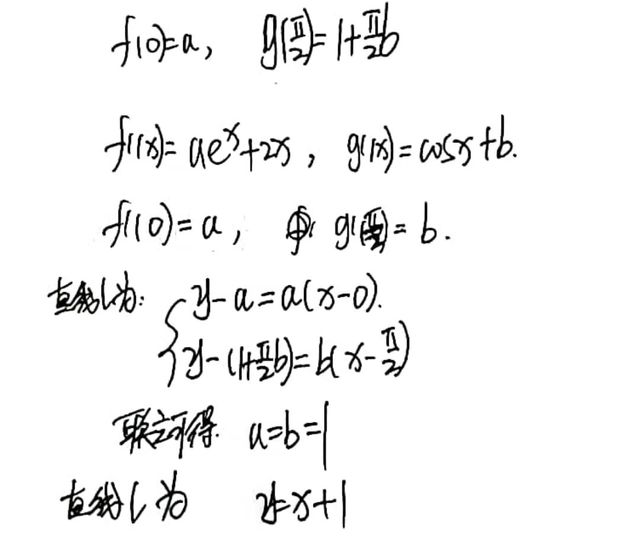 f(0)=a, g(π/2)=1+π/2b
f'(x)=ae^x+2x, g'(x)=cosx+b.
f'(0)=a, g'(π/2)=b.
直线l为: y-a=a(x-0).
y-(1+π/2b)=b(x-π/2)
联立可得 a=b=1
直线l为 y=x+1